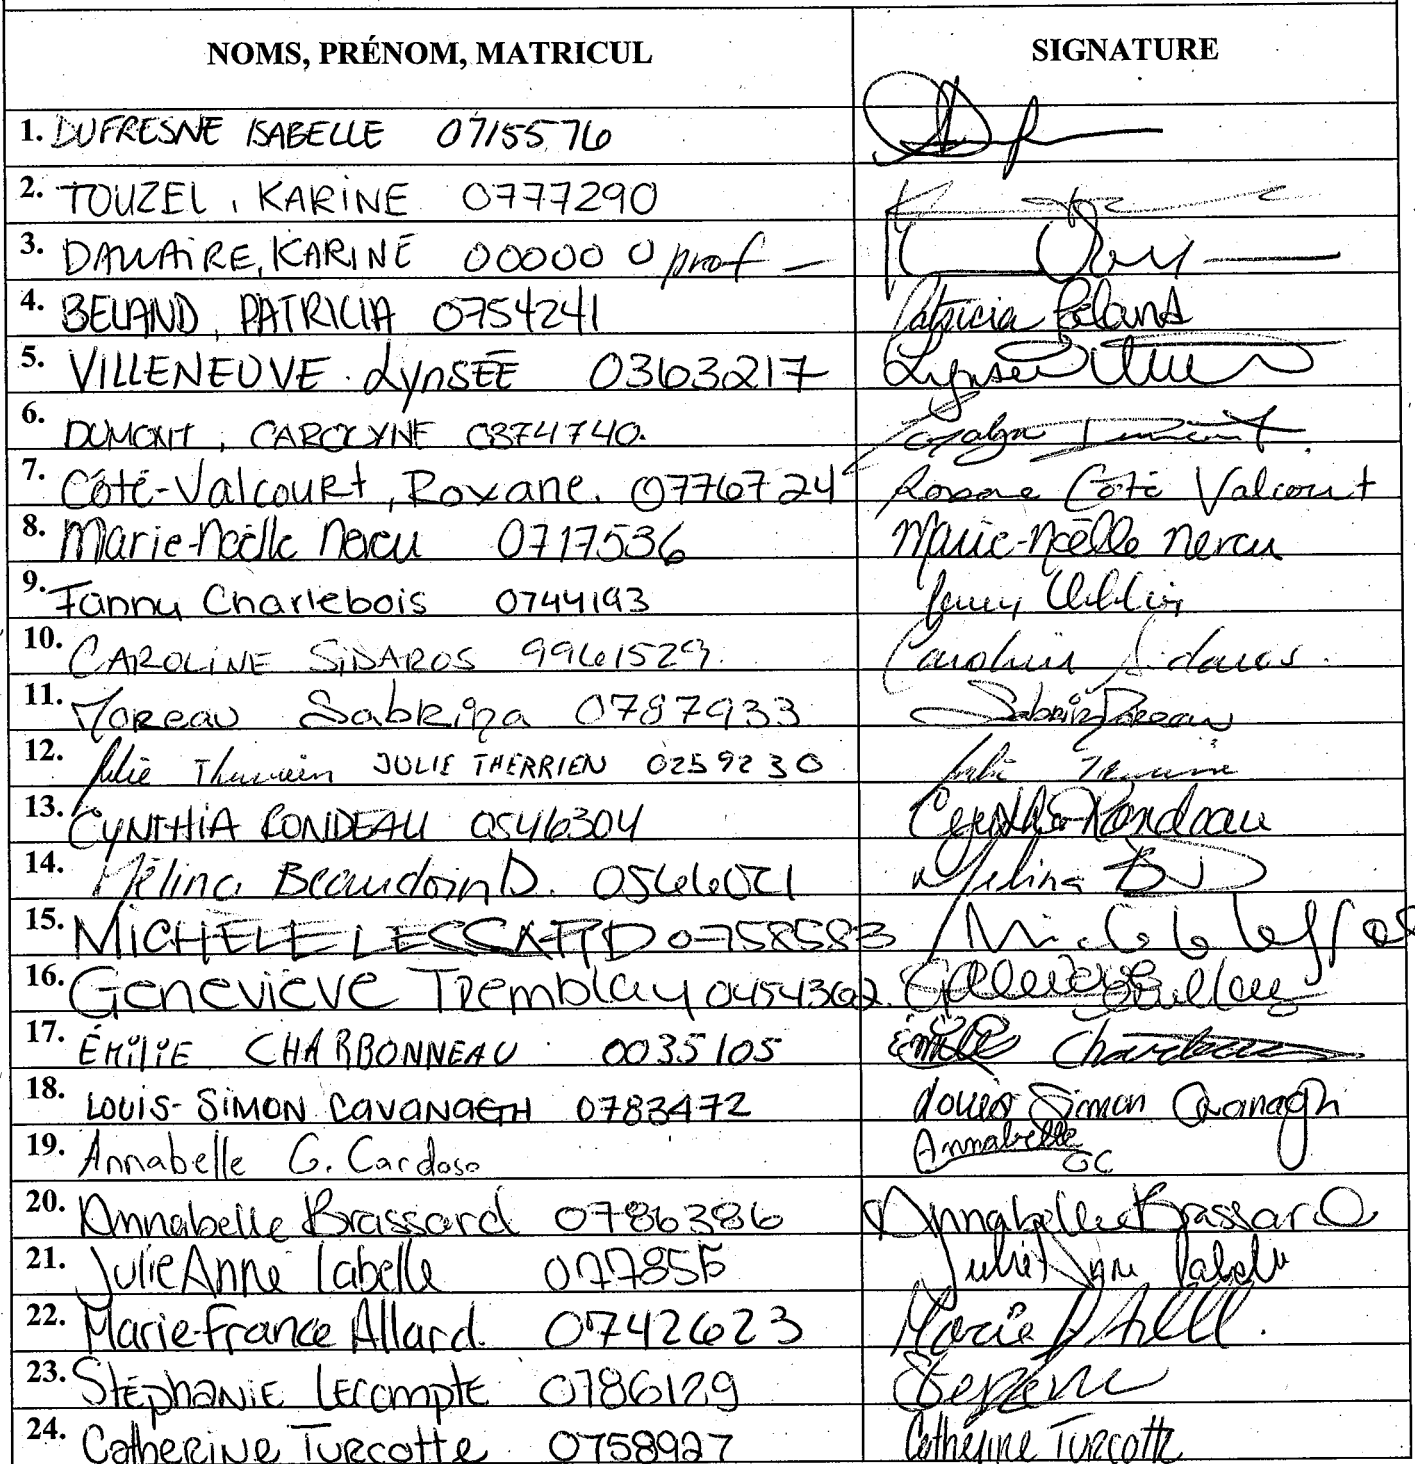 NOMS, PRÉNOM, MATRICUL SIGNATURE
1. DUFRESNE ISABELLE 0715576
2. TOUZEL, KARINE 0777290
3. DALLAIRE, KARINE 00000 0 prof –
4. BELAND, PATRICIA 0754241 Patricia Béland
5. VILLENEUVE LynSÉE 0363217 Lynsée
6. DUMONT, CAROLYNE 0874740. Carolyne Dumont
7. Côté-Valcourt, Roxane. 0776724 Roxane Côté Valcourt
8. Marie-Noëlle Nercu 0717536 Marie-Noëlle Nercu
9. Fanny Charlebois 0744193
10. CAROLINE SIDAROS 9961529. Caroline Sidaros.
11. Moreau Sabrina 0787933 Sabrina Moreau
12. Julie Therrien JULIE THERRIEN 0259230 Julie Therrien
13. CYNTHIA RONDEAU 0546304 Cynthia Rondeau
14. Mélina Beaudoin D. Mélina BD
15. MICHELE LESSARD 0758583
16. Geneviève Tremblay 0454362. Geneviève Tremblay
17. ÉMILIE CHARBONNEAU 0035105 Émilie Charbonneau
18. LOUIS-SIMON CAVANAGH 0783472 Louis Simon Cavanagh
19. Annabelle G. Cardoso Annabelle GC
20. Annabelle Brassard 0786386 Annabelle Brassard
21. Julie Anne Labelle Julie Anne Labelle
22. Marie-France Allard. 0742623 Marie
23. Stéphanie Lecompte 0786129
24. Catherine Turcotte 0758927 Catherine Turcotte